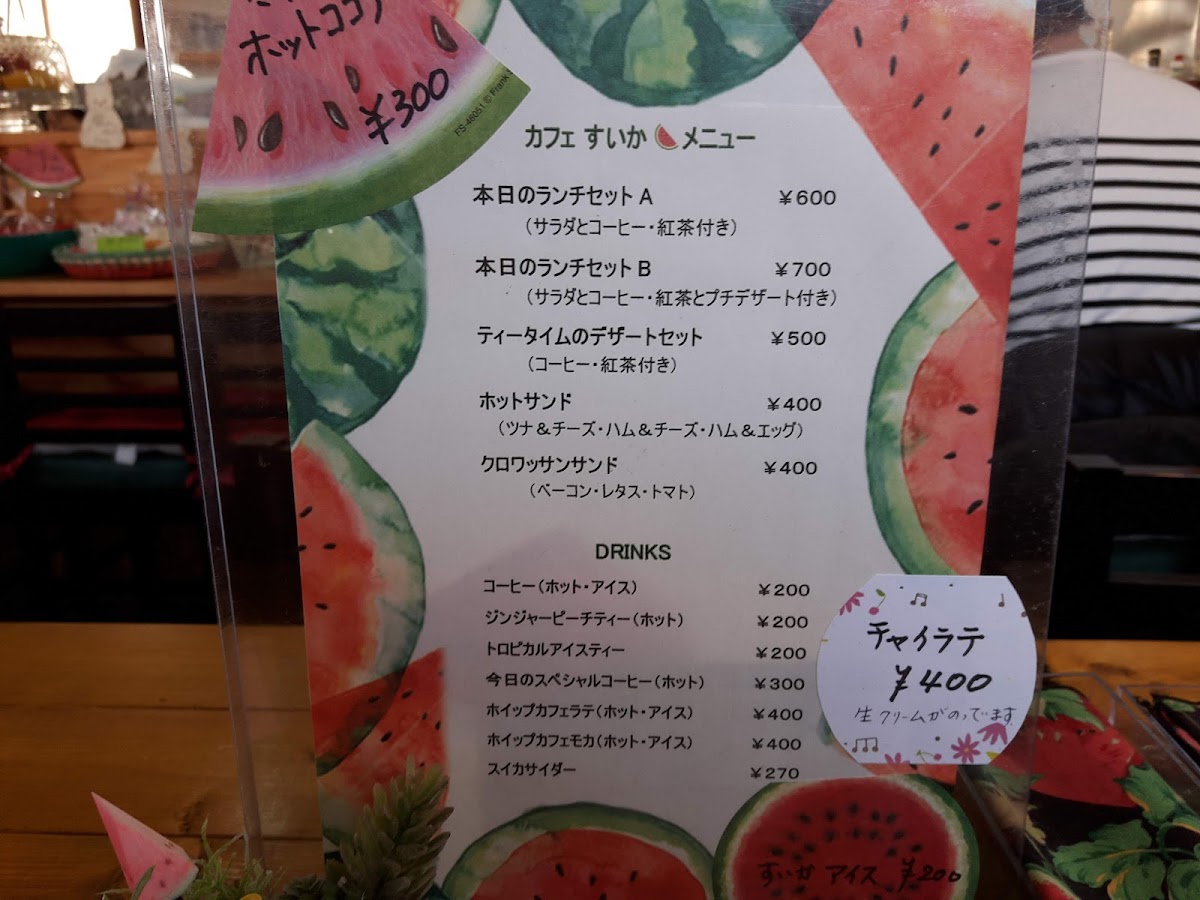 ホットココア
¥300
FS-4605.1 © Frank
カフェ すいか メニュー
本日のランチセット A ¥600
（サラダとコーヒー・紅茶付き）
本日のランチセット B ¥700
（サラダとコーヒー・紅茶とプチデザート付き）
ティータイムのデザートセット ¥500
（コーヒー・紅茶付き）
ホットサンド ¥400
（ツナ＆チーズ・ハム＆チーズ・ハム＆エッグ）
クロワッサンサンド ¥400
（ベーコン・レタス・トマト）
DRINKS
コーヒー（ホット・アイス） ¥200
ジンジャーピーチティー（ホット） ¥200
トロピカルアイスティー ¥200
今日のスペシャルコーヒー（ホット） ¥300
ホイップカフェラテ（ホット・アイス） ¥400
ホイップカフェモカ（ホット・アイス） ¥400
スイカサイダー ¥270
チャイラテ
¥400
生クリームがのってます
すいか アイス ¥200